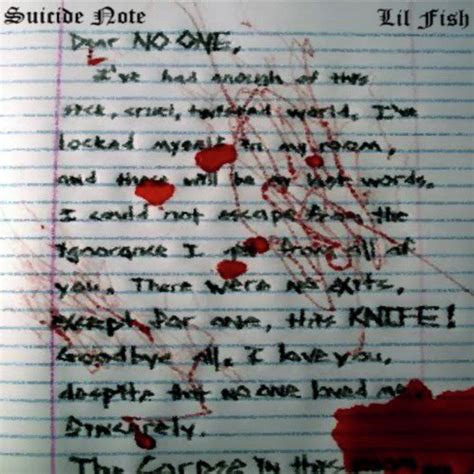 Suicide Note
Lil Fish
Dear NO ONE,
I've had enough of this
sick, cruel, twisted world. I've
locked myself in my room,
and these will be my last words.
I could not escape from the
ignorance I get from all of
you. There were no exits,
except for one, this KNIFE!
Goodbye all, I love you,
despite that no one loved me.
Sincerely,
The Corpse in this